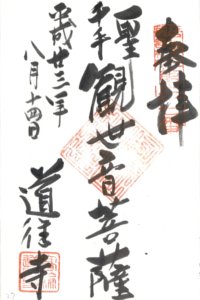 奉拝
聖
千手観世音菩薩
平成廿三年
八月十四日
道往寺